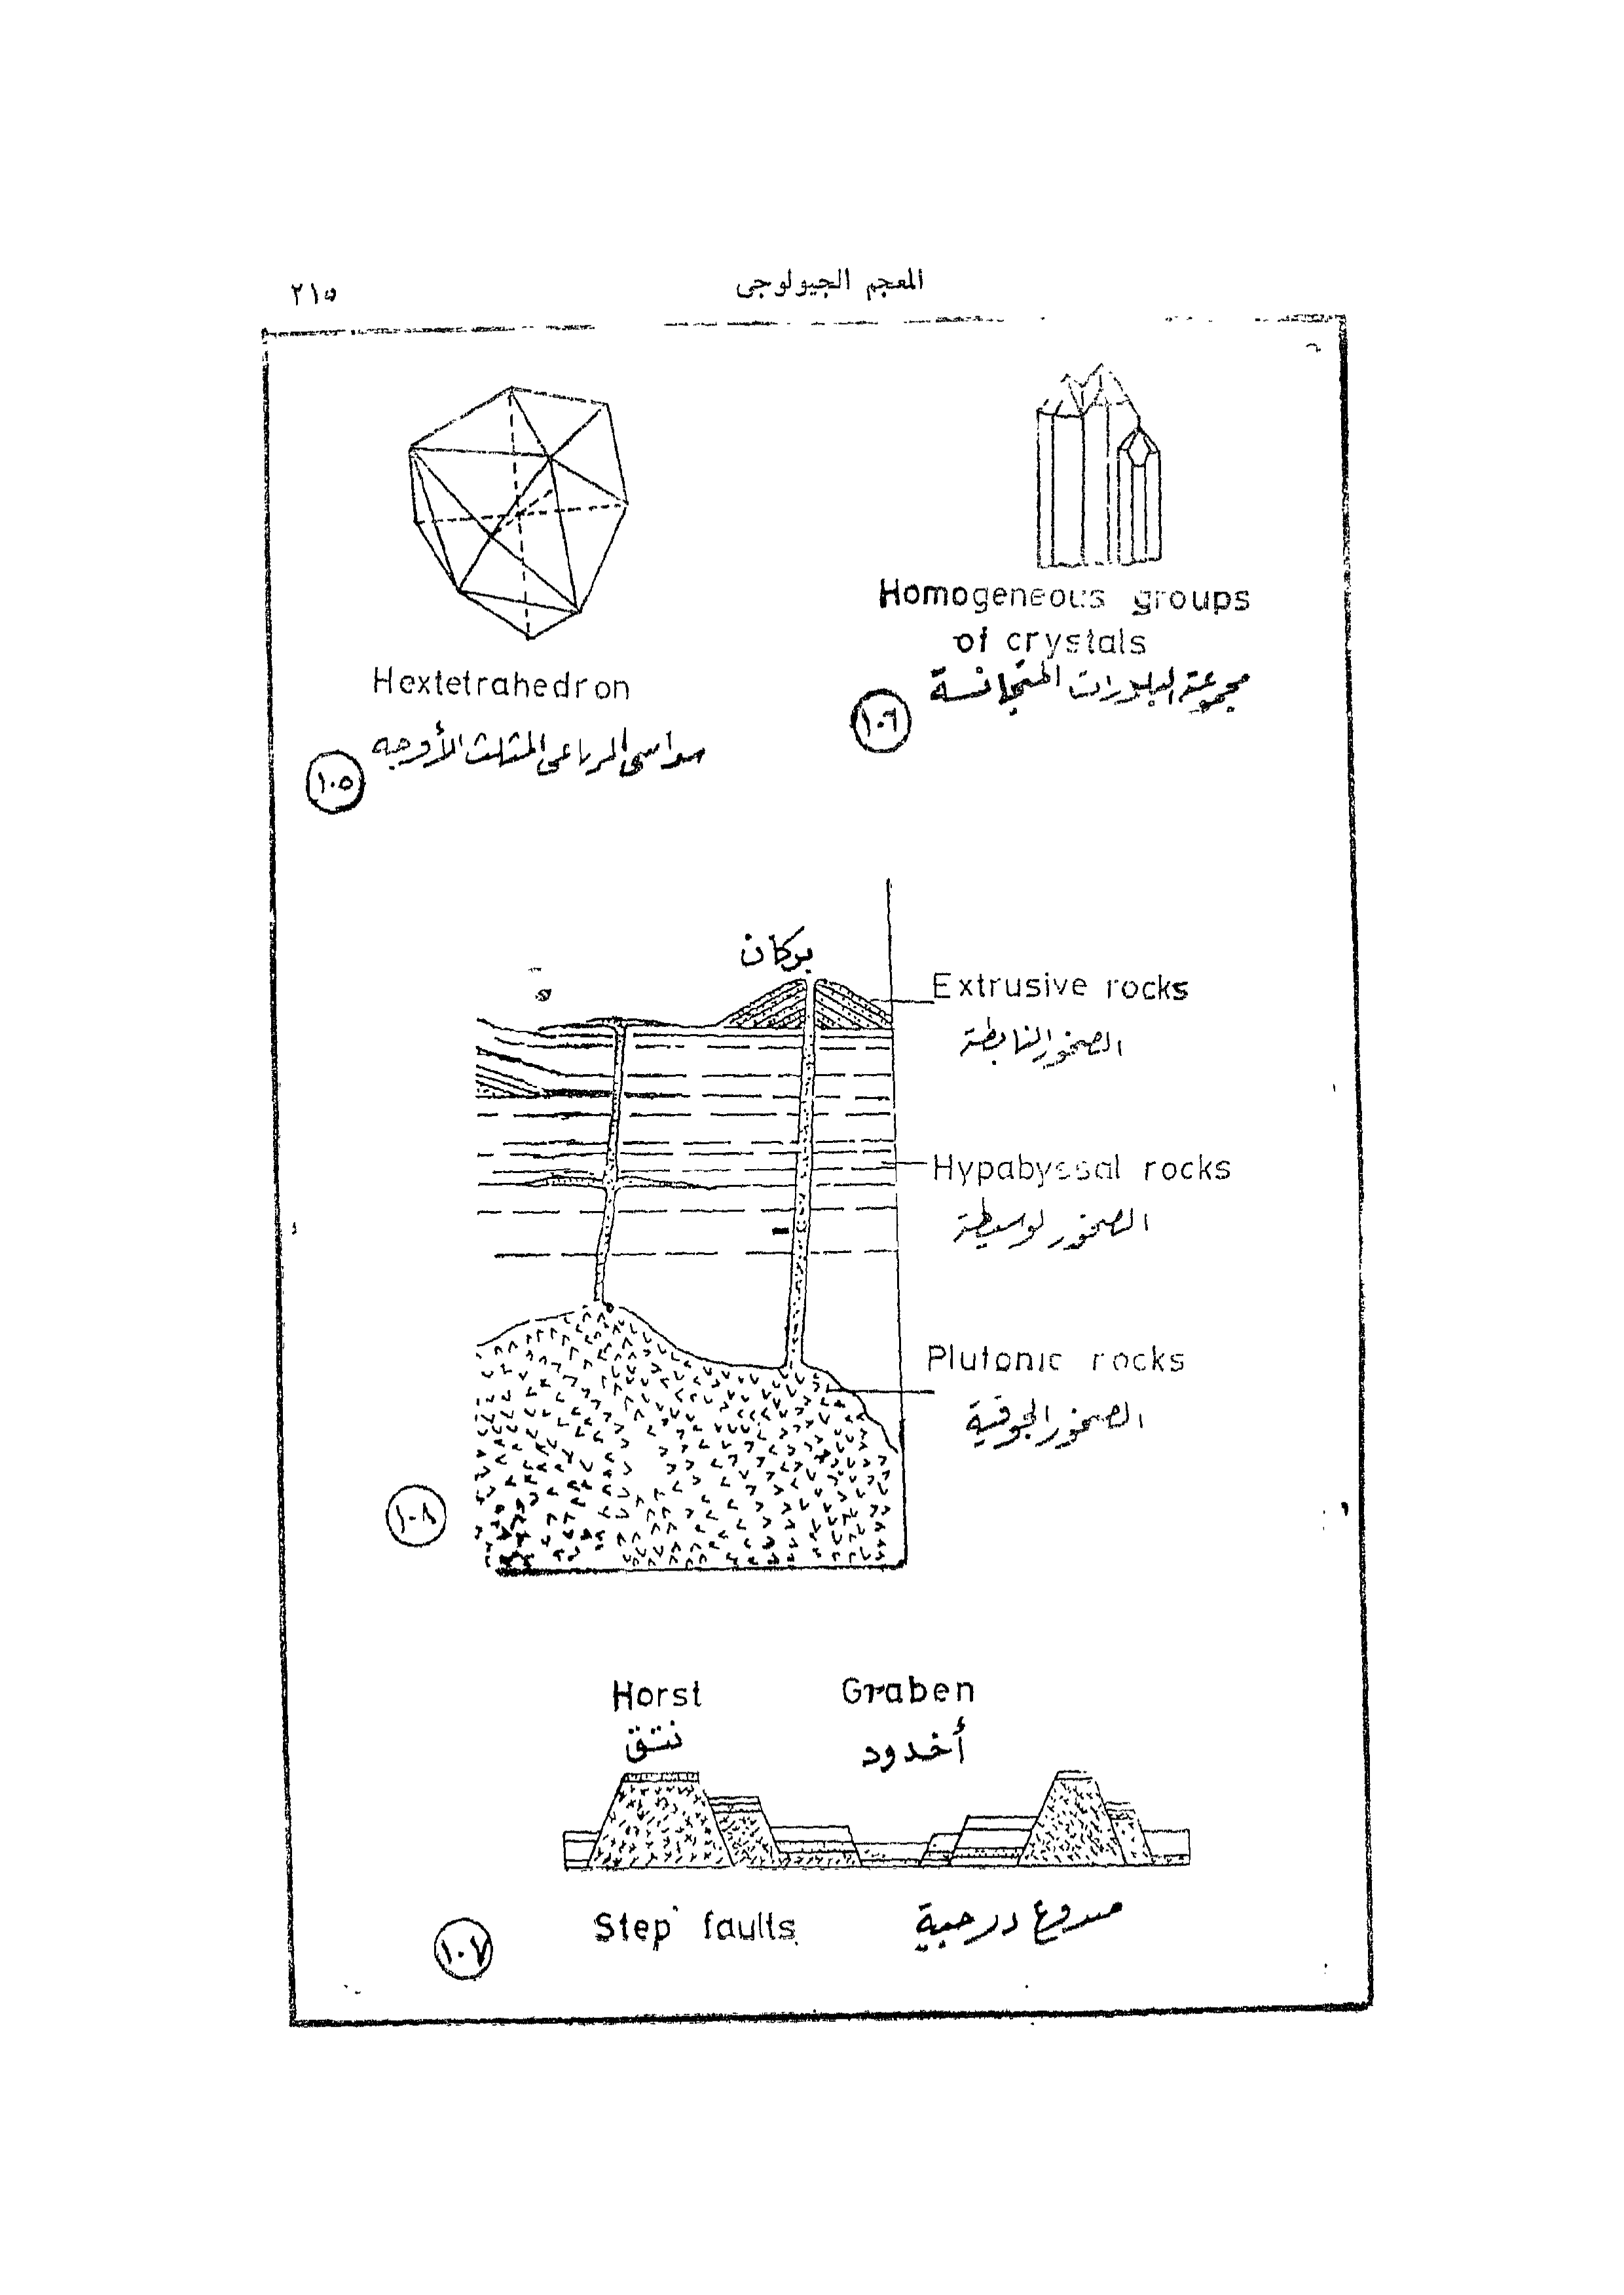 المعجم الجيولوجى
٢١٥
Hextetrahedron
سداسى الرباعى المثلث الأوجه
١٠٥
Homogeneous groups
of crystals
مجموعة البلورات المتجانسة
١٠٦
بركان
Extrusive rocks
الصخور النابطة
Hypabyssal rocks
الصخور لوسيطة
Plutonic rocks
الصخور الجوفية
١٠٨
Horst
نتق
Graben
أخدود
Step faults
صدوع درجية
١٠٧